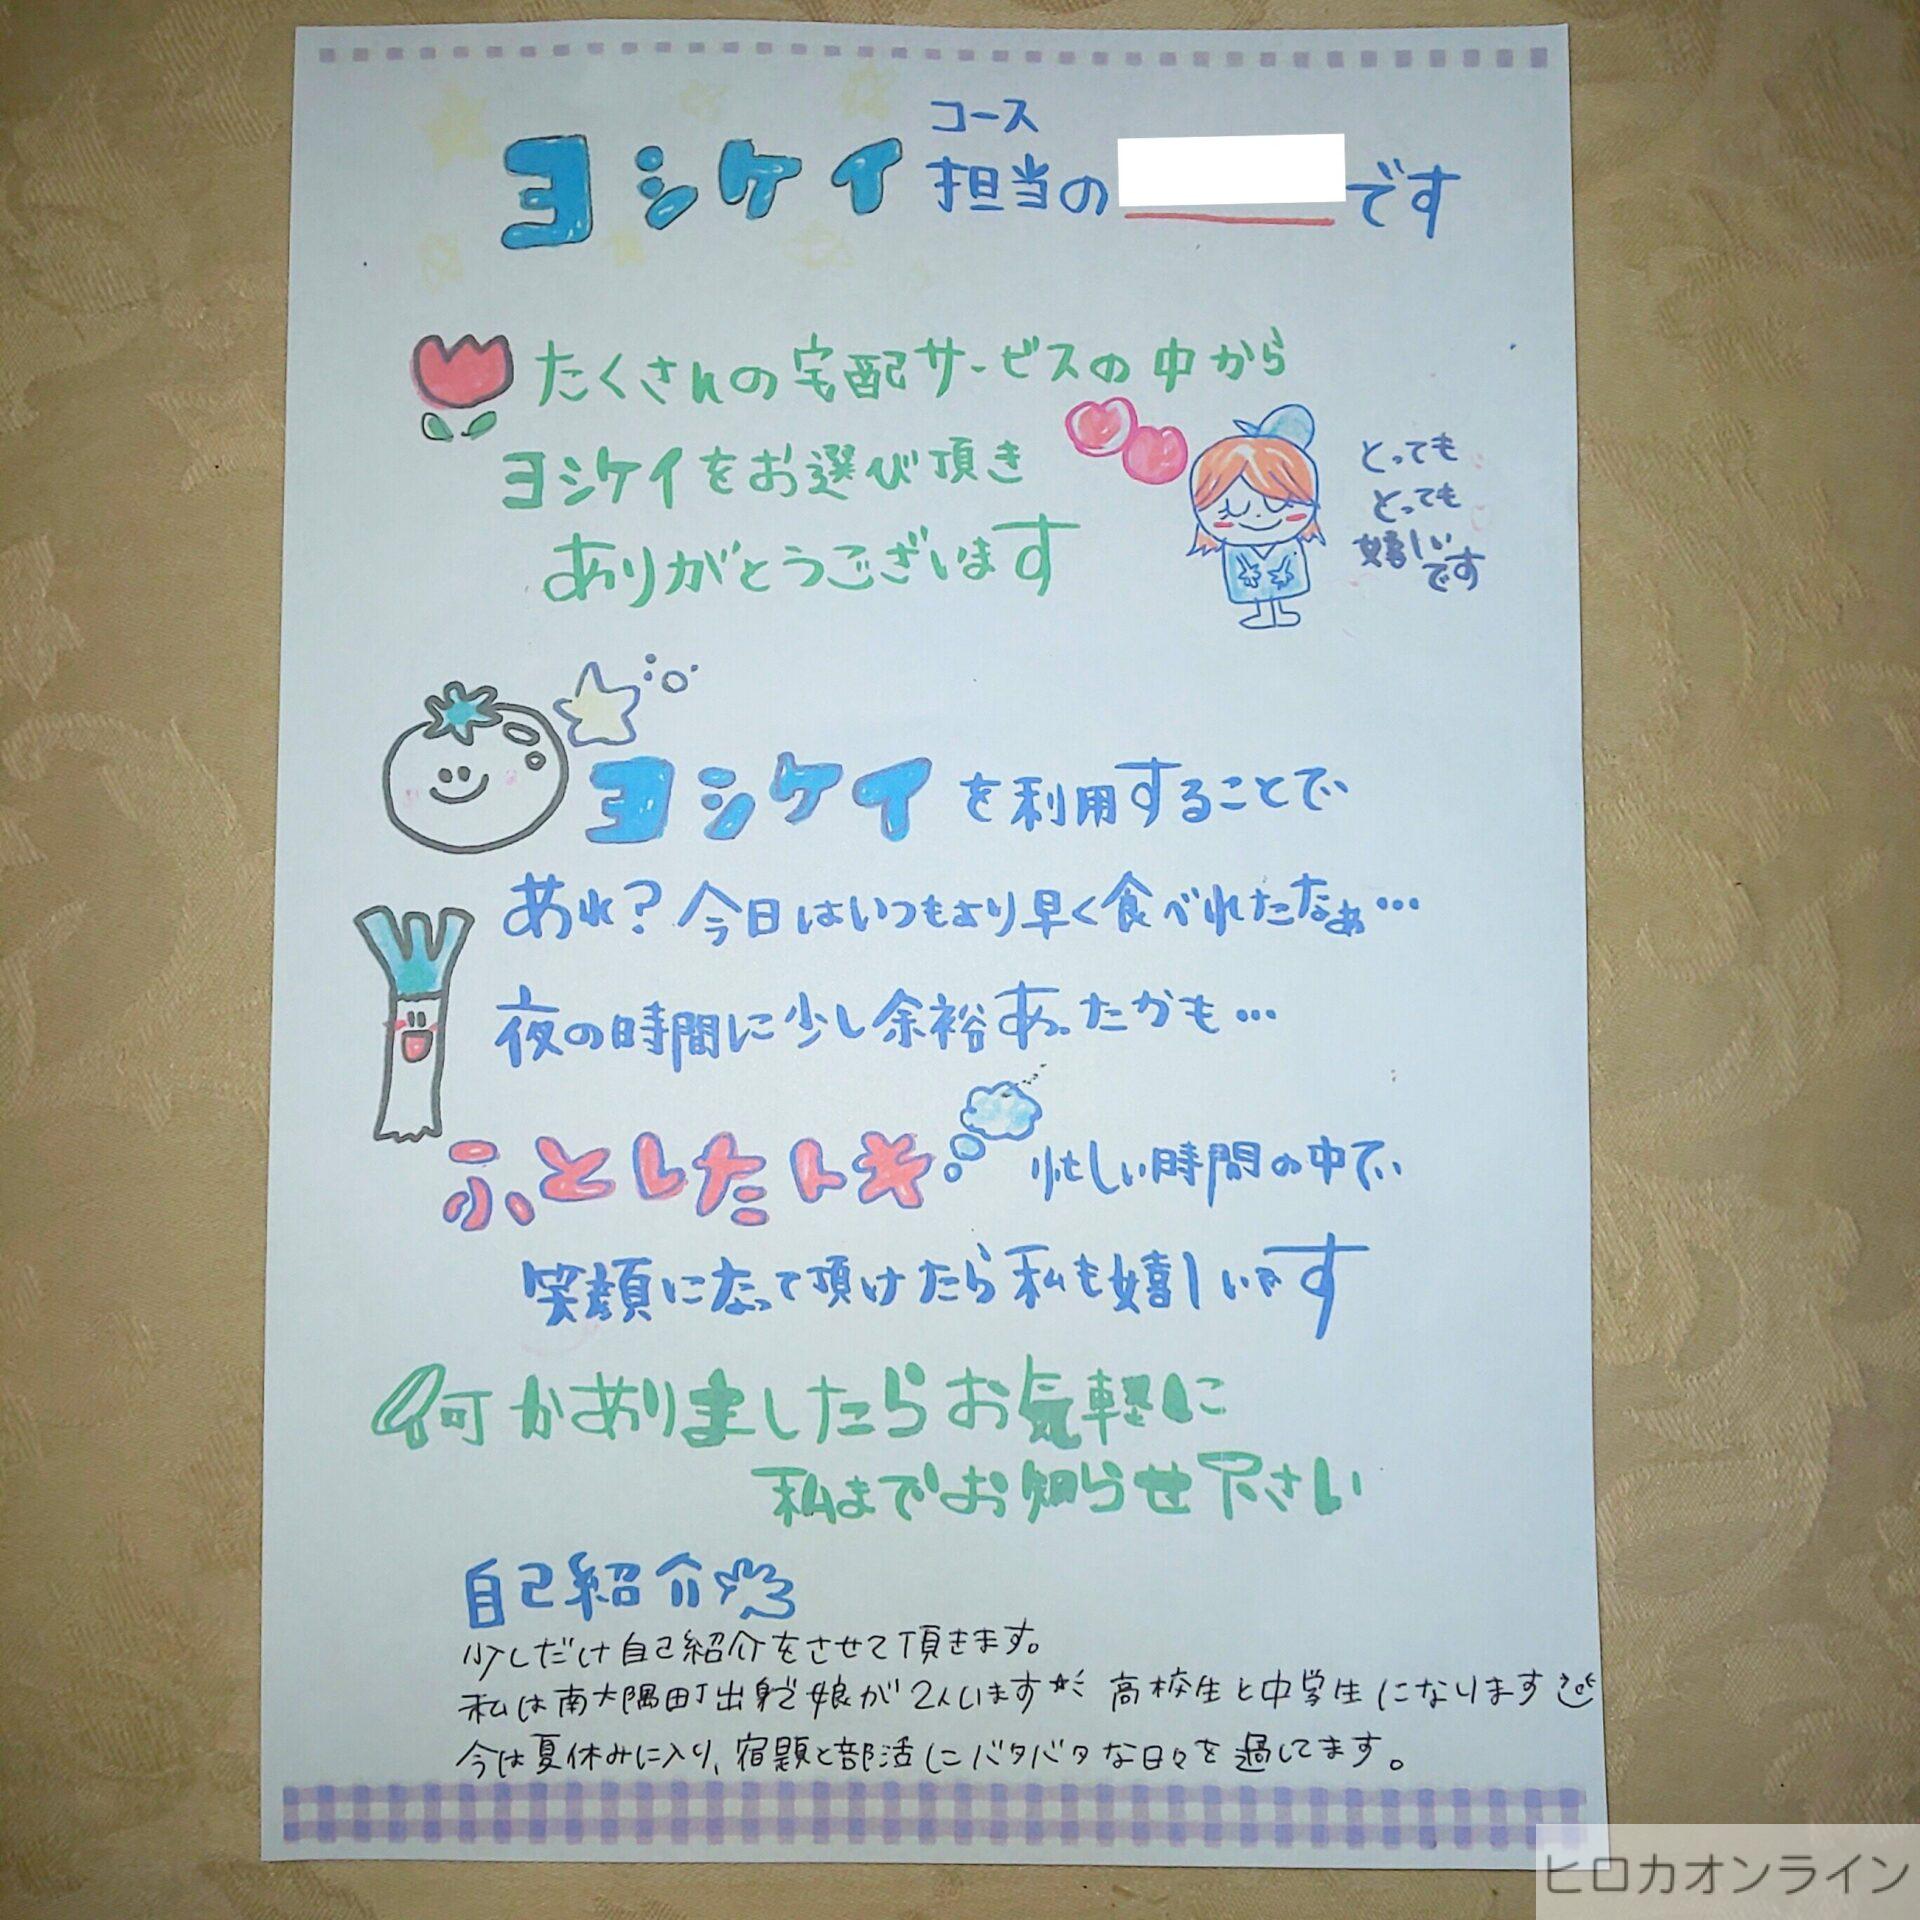 ヨシケイ コース
担当の です
たくさんの宅配サービスの中から
ヨシケイをお選び頂き
ありがとうございます
とっても
とっても
嬉しい
です
ヨシケイを利用することで、
あれ?今日はいつもより早く食べれたなぁ…
夜の時間に少し余裕あったかも…
ふとしたトキ 忙しい時間の中で、
笑顔になって頂けたら私も嬉しいです
何かありましたらお気軽に
私までお知らせ下さい
自己紹介
少しだけ自己紹介をさせて頂きます。
私は南大隅町出身で娘が2人います 高校生と中学生になります
今は夏休みに入り、宿題と部活にバタバタな日々を過してます。
ヒロカオンライン